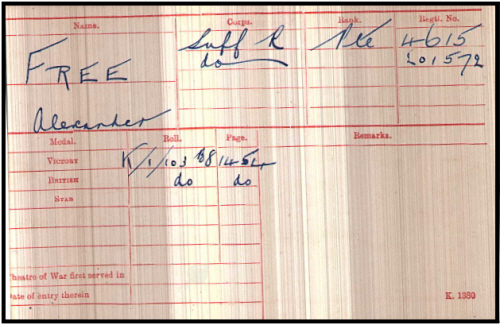 Name. Corps. Rank. Regtl. No.
FREE Suff R Pte 4615
do 201572
Alexander
Medal. Roll. Page. Remarks.
VICTORY K/1/103 B8 1454
BRITISH do do
STAR
Theatre of War first served in
Date of entry therein K. 1380